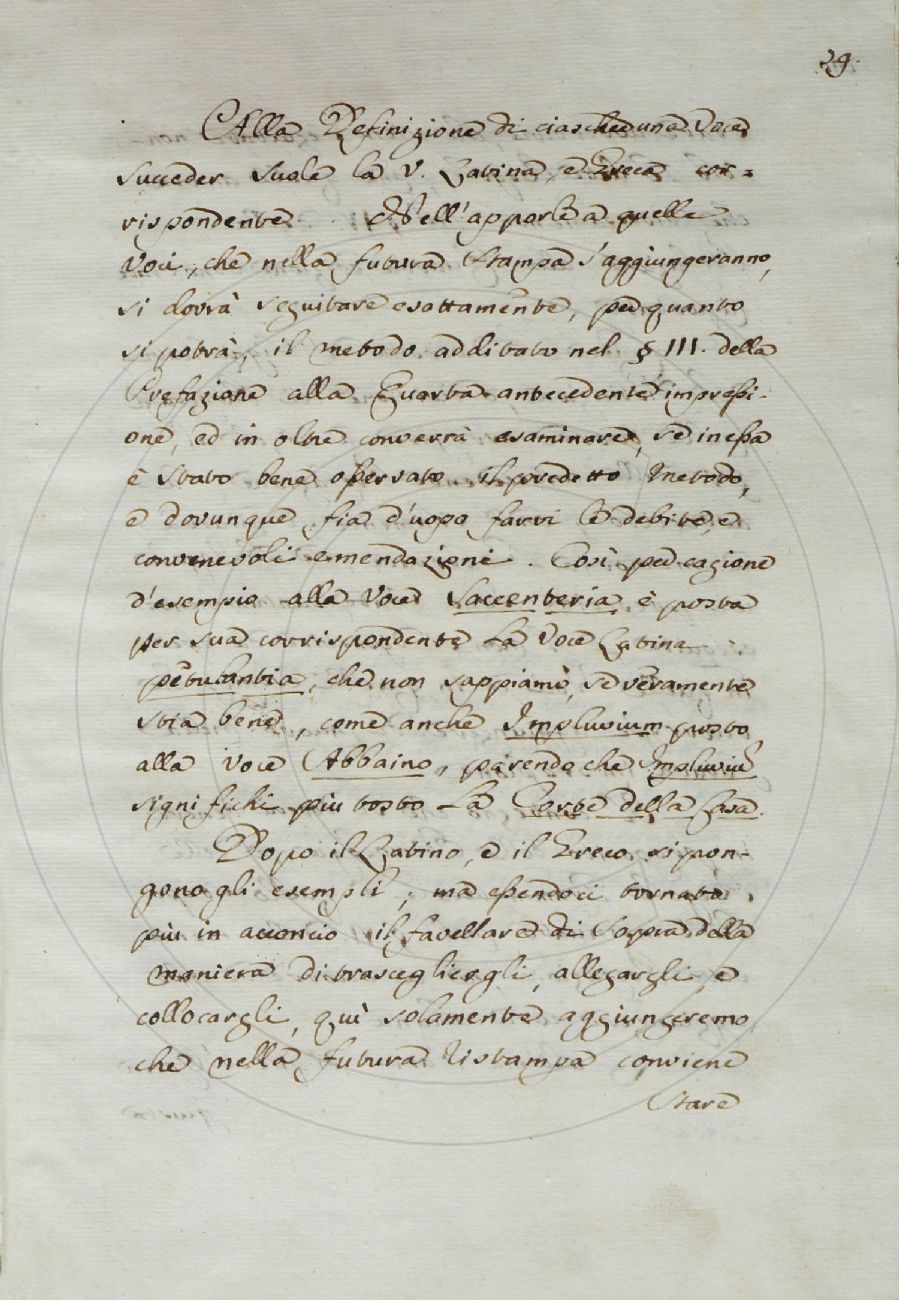 29.
Alla Definizione di ciascheduna Voce
succeder suole la V. Latina, e Greca cor=
rispondente. Nell'apporle a quelle
Voci, che nella futura Stampa s'aggiungeranno,
si dovrà seguitare esattamente, per quanto
si potrà, il metodo additato nel § III. della
Prefazione alla Quarta antecedente impressi-
one, ed in oltre converrà esaminare, se in essa
è stato bene osservato il predetto Metodo,
e dovunque fia d'uopo farvi le debite, e
convenevoli emendazioni. Così per cagione
d'esempio alla Voce Saccenteria, è posta
per sua corrispondente La Voce Latina
petulantia, che non sappiamo, se veramente
stia bene, come anche Impluvium posto
alla Voce Abbaino, parendo che Impluviu
significhi più tosto La Corte della Casa.
Dopo il Latino, e il Greco si pon-
gono gli esempli, ma essendoci tornato
più in acconcio il favellare di sopra della
maniera di trascegliergli, allegargli e
collocargli, quì solamente aggiungeremo
che nella futura Ristampa conviene
stare